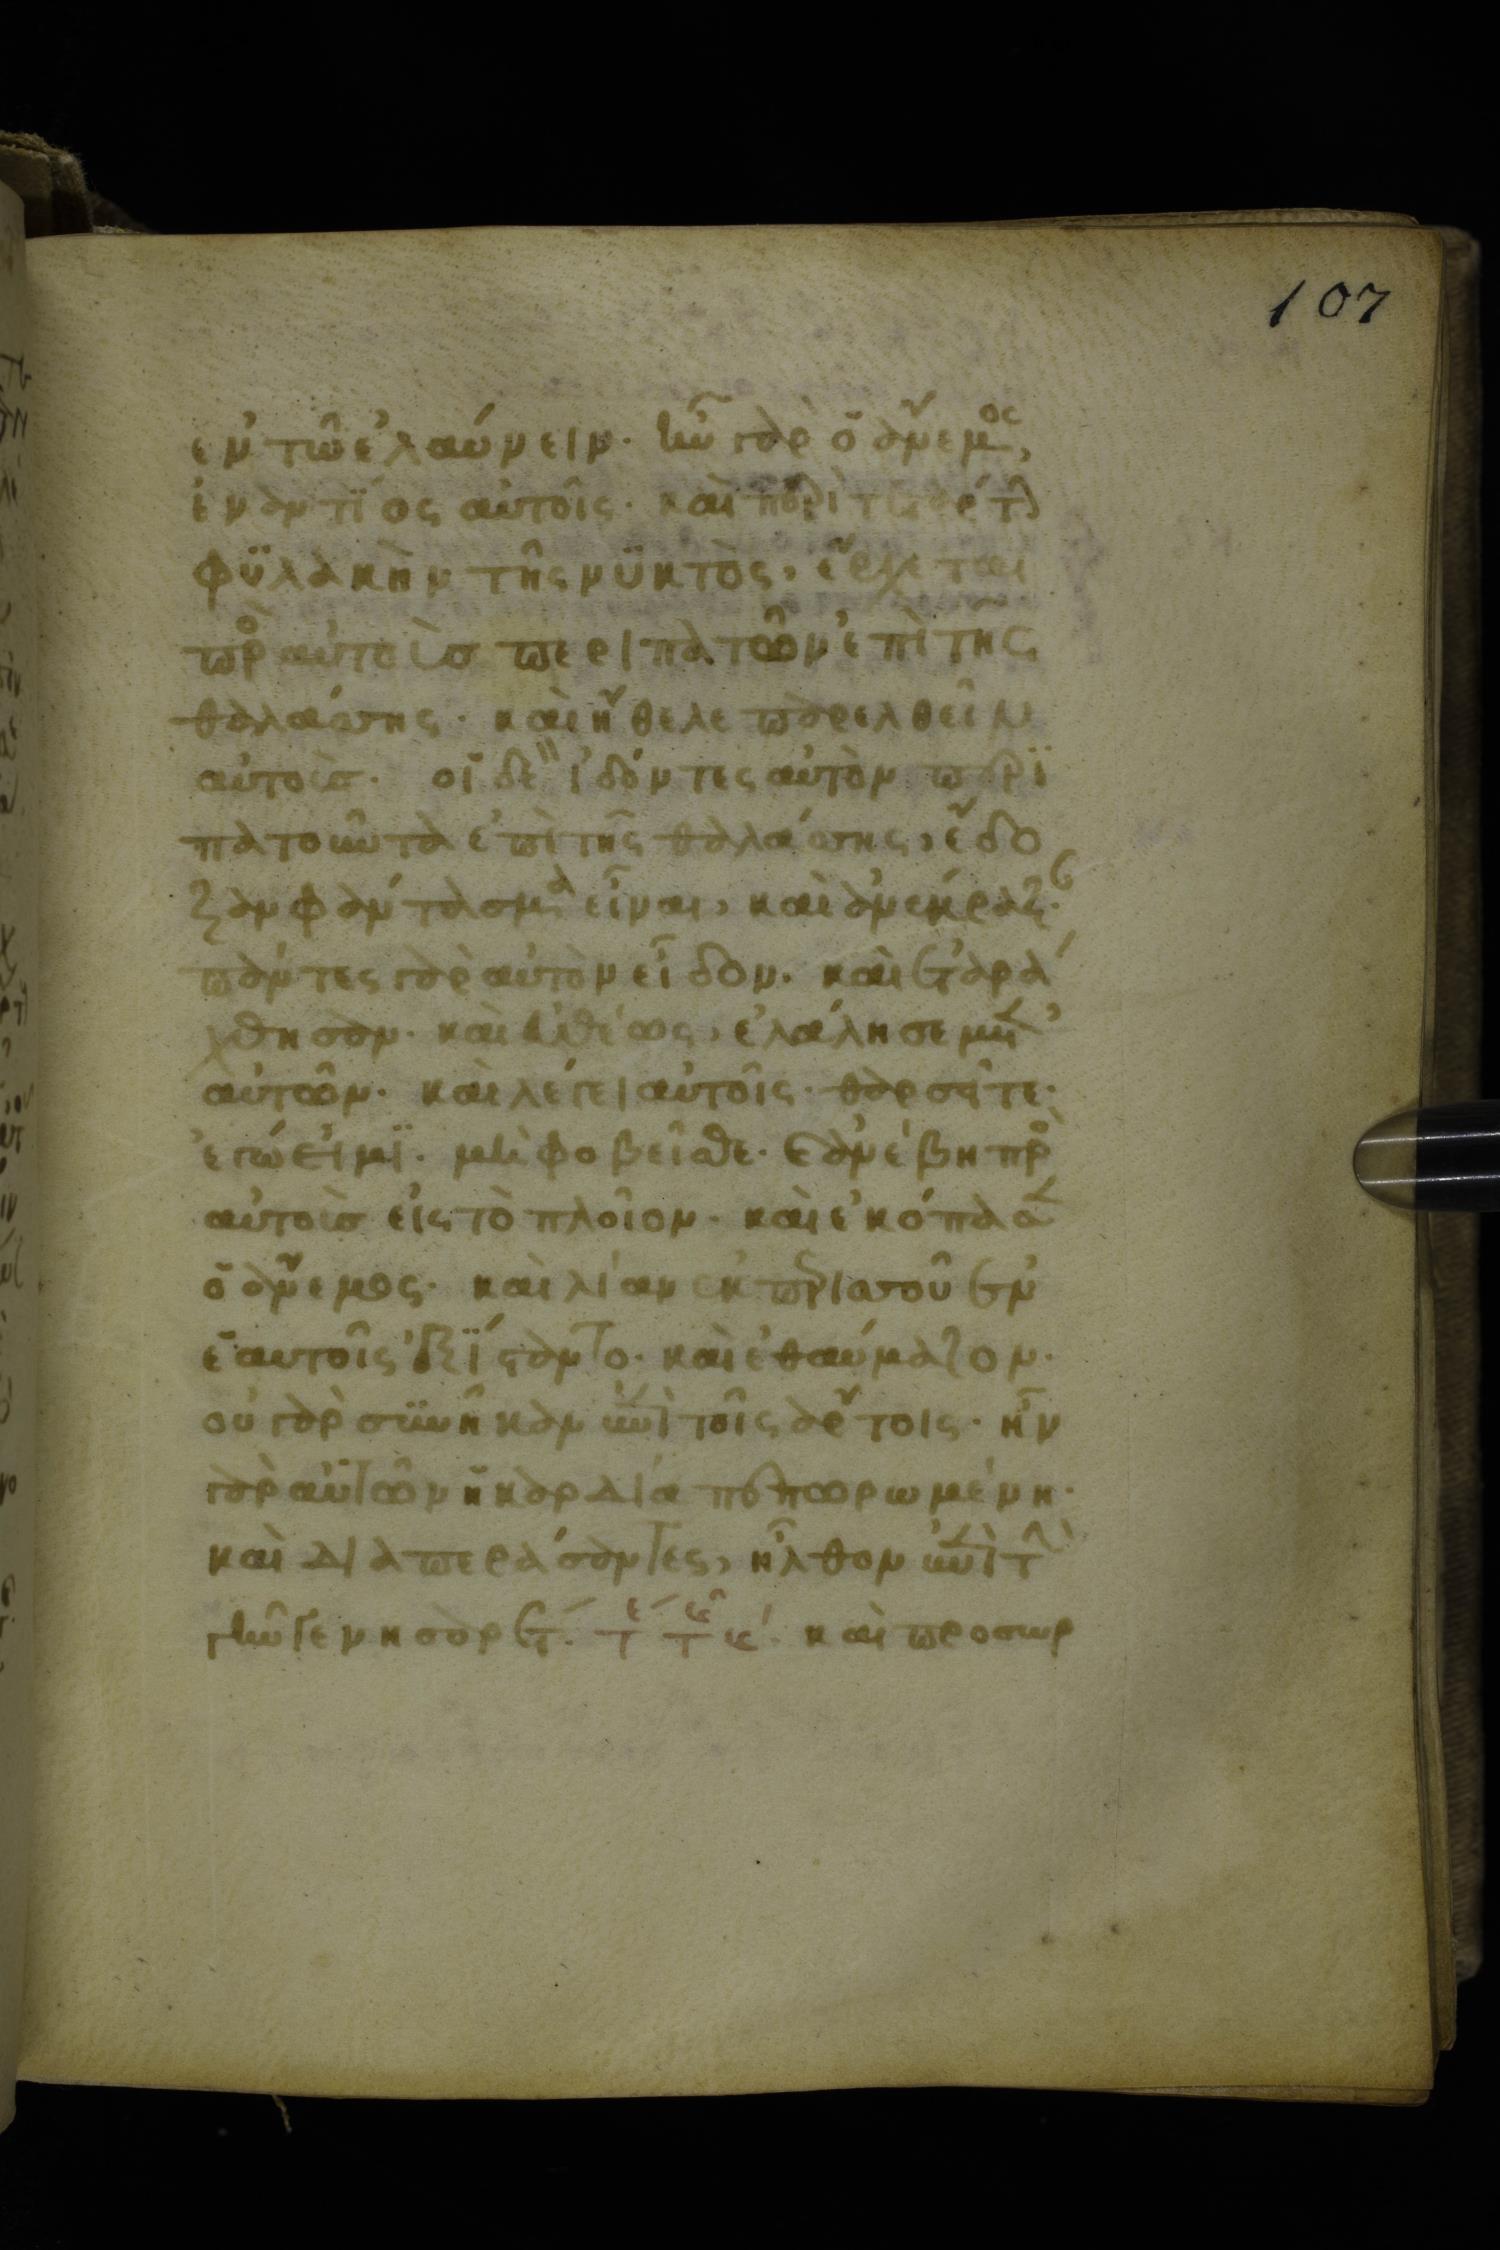 107
ἐν τῶ ἐλαύνειν· ἦν γὰρ ὁ ἄνεμος,
ἐναντίος αὐτοῖς· καὶ περὶ τετάρτην
φϋλακὴν τῆς νϋκτὸς, ἔρχεται
πρὸς αὐτοὺς περιπατῶν ἐπὶ τῆς
θαλάσσης· καὶ ἤθελε παρελθεῖν
αὐτούς· οἱ δὲ ἰδόντες αὐτὸν περϊ
πατοῦντα ἐπὶ τῆς θαλάσσης, ἔδο
ξαν φάντασμα εἶναι, καὶ ἀνέκραξαν·
πάντες γὰρ αὐτὸν εἶδον· καὶ ἐταρά
χθησαν· καὶ εὐθέως, ἐλάλησε μετ'
αὐτῶν· καὶ λέγει αὐτοῖς· θαρσεῖτε·
ἐγώ εἰμϊ· μὴ φοβεῖσθε· καὶ ἀνέβη πρὸς
αὐτοὺς εἰς τὸ πλοῖον· καὶ ἐκόπασεν
ὁ ἄνεμος· καὶ λίαν ἐκ περισσοῦ ἐν
ἑαυτοῖς ἐξΐσταντο· καὶ ἐθαύμαζον·
οὐ γὰρ συνῆκαν ἐπὶ τοῖς ἄρτοις· ἦν
γὰρ αὐτῶν ἡ καρδία πεπωρωμένη·
καὶ διαπεράσαντες, ἦλθον ἐπὶ τὴν
γῆν γενησαρέτ· καὶ προσωρ